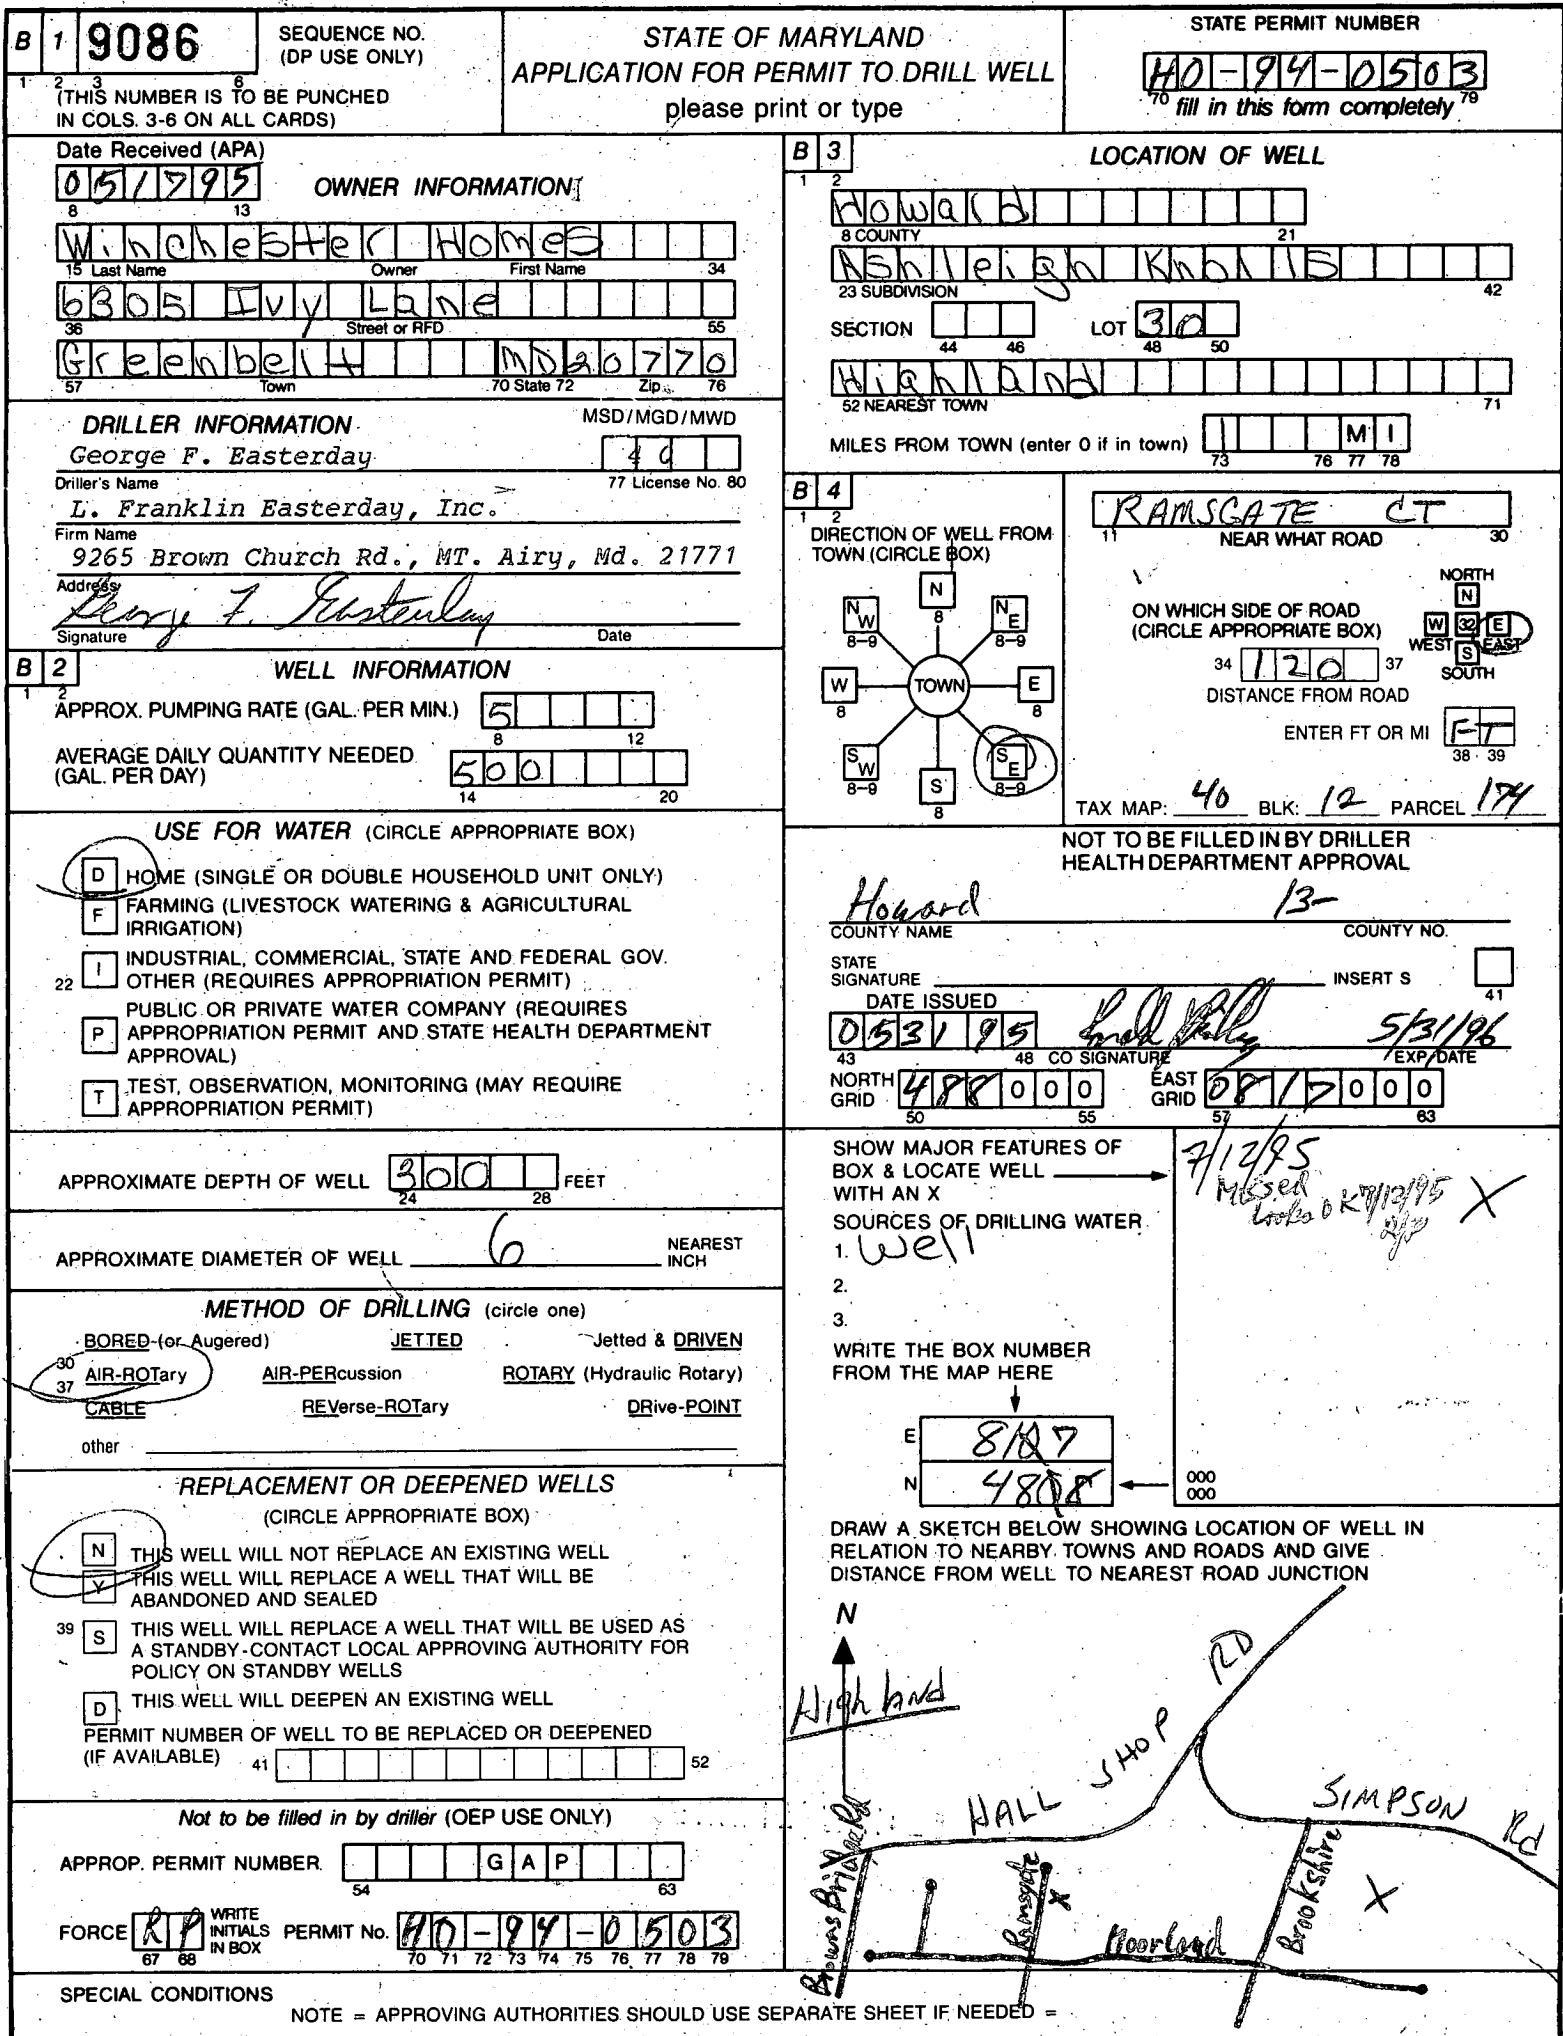 B 1 9086 SEQUENCE NO. (DP USE ONLY)
1 2 3 6
(THIS NUMBER IS TO BE PUNCHED
IN COLS. 3-6 ON ALL CARDS)
STATE OF MARYLAND
APPLICATION FOR PERMIT TO DRILL WELL
please print or type
STATE PERMIT NUMBER
HO-94-0503
70 fill in this form completely 79
Date Received (APA)
051795
8 13
OWNER INFORMATION
Winchester Homes
15 Last Name Owner First Name 34
6305 Ivy Lane
36 Street or RFD 55
Greenbelt MD 20770
57 Town 70 State 72 Zip 76
DRILLER INFORMATION MSD/MGD/MWD
George F. Easterday 40
Driller's Name 77 License No. 80
L. Franklin Easterday, Inc.
Firm Name
9265 Brown Church Rd., MT. Airy, Md. 21771
Address
George F. Easterday
Signature Date
B 2 WELL INFORMATION
1 2
APPROX. PUMPING RATE (GAL. PER MIN.) 5
8 12
AVERAGE DAILY QUANTITY NEEDED
(GAL. PER DAY) 500
14 20
USE FOR WATER (CIRCLE APPROPRIATE BOX)
D HOME (SINGLE OR DOUBLE HOUSEHOLD UNIT ONLY)
F FARMING (LIVESTOCK WATERING & AGRICULTURAL
IRRIGATION)
22 I INDUSTRIAL, COMMERCIAL, STATE AND FEDERAL GOV.
OTHER (REQUIRES APPROPRIATION PERMIT)
P PUBLIC OR PRIVATE WATER COMPANY (REQUIRES
APPROPRIATION PERMIT AND STATE HEALTH DEPARTMENT
APPROVAL)
T TEST, OBSERVATION, MONITORING (MAY REQUIRE
APPROPRIATION PERMIT)
APPROXIMATE DEPTH OF WELL 300 FEET
24 28
APPROXIMATE DIAMETER OF WELL 6 NEAREST INCH
METHOD OF DRILLING (circle one)
BORED (or Augered) JETTED Jetted & DRIVEN
30
37 AIR-ROTary AIR-PERcussion ROTARY (Hydraulic Rotary)
CABLE REVerse-ROTary DRive-POINT
other
REPLACEMENT OR DEEPENED WELLS
(CIRCLE APPROPRIATE BOX)
N THIS WELL WILL NOT REPLACE AN EXISTING WELL
Y THIS WELL WILL REPLACE A WELL THAT WILL BE
ABANDONED AND SEALED
39 S THIS WELL WILL REPLACE A WELL THAT WILL BE USED AS
A STANDBY-CONTACT LOCAL APPROVING AUTHORITY FOR
POLICY ON STANDBY WELLS
D THIS WELL WILL DEEPEN AN EXISTING WELL
PERMIT NUMBER OF WELL TO BE REPLACED OR DEEPENED
(IF AVAILABLE) 41 52
Not to be filled in by driller (OEP USE ONLY)
APPROP. PERMIT NUMBER GAP
54 63
FORCE RP WRITE INITIALS IN BOX PERMIT No. HO-94-0503
67 68 70 71 72 73 74 75 76 77 78 79
SPECIAL CONDITIONS
NOTE = APPROVING AUTHORITIES SHOULD USE SEPARATE SHEET IF NEEDED =
B 3 LOCATION OF WELL
1 2
Howard
8 COUNTY 21
Ashleigh Knolls
23 SUBDIVISION 42
SECTION LOT 30
44 46 48 50
Highland
52 NEAREST TOWN 71
MILES FROM TOWN (enter 0 if in town) 1 MI
73 76 77 78
B 4
1 2
DIRECTION OF WELL FROM
TOWN (CIRCLE BOX)
N
8
NW NE
8-9 8-9
W TOWN E
8 8
SW SE
8-9 8-9
S
8
RAMSGATE CT
11 NEAR WHAT ROAD 30
ON WHICH SIDE OF ROAD
(CIRCLE APPROPRIATE BOX)
NORTH
N
W 32 E
WEST EAST
S
SOUTH
34 120 37
DISTANCE FROM ROAD
ENTER FT OR MI FT
38 39
TAX MAP: 40 BLK: 12 PARCEL 174
NOT TO BE FILLED IN BY DRILLER
HEALTH DEPARTMENT APPROVAL
Howard 13-
COUNTY NAME COUNTY NO.
STATE
SIGNATURE INSERT S
41
DATE ISSUED
053195 5/31/96
43 48 CO SIGNATURE EXP/DATE
NORTH GRID 488000 EAST GRID 0817000
50 55 57 63
SHOW MAJOR FEATURES OF
BOX & LOCATE WELL
WITH AN X
7/12/95
Missed
Looks OK 7/12/95
X
SOURCES OF DRILLING WATER
1. Well
2.
3.
WRITE THE BOX NUMBER
FROM THE MAP HERE
E 817
N 488
000
000
DRAW A SKETCH BELOW SHOWING LOCATION OF WELL IN
RELATION TO NEARBY TOWNS AND ROADS AND GIVE
DISTANCE FROM WELL TO NEAREST ROAD JUNCTION
N
Highland
HALL SHOP RD
SIMPSON Rd
Browns Bridge Rd
Ramsgate
X
Moorland
Brookshire
X